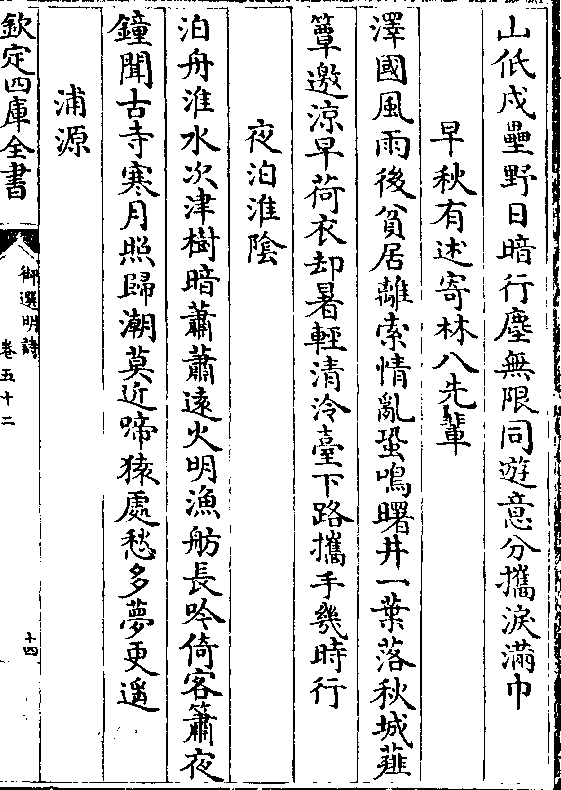 山低戍壘野日暗行塵無限同遊意分攜淚滿巾
早秋有述寄林八先輩
澤國風雨後貧居離索情亂蛩鳴曙井一葉落秋城薤
簟邀涼早荷衣却暑輕清泠臺下路攜手幾時行
夜泊淮陰
泊舟淮水次津樹暗蕭蕭逺火明漁舫長吟倚客簫夜
鐘聞古寺寒月照歸潮莫近啼猿處愁多夢更遥
浦源
欽定四庫全書
御選明詩
卷五十二
十四